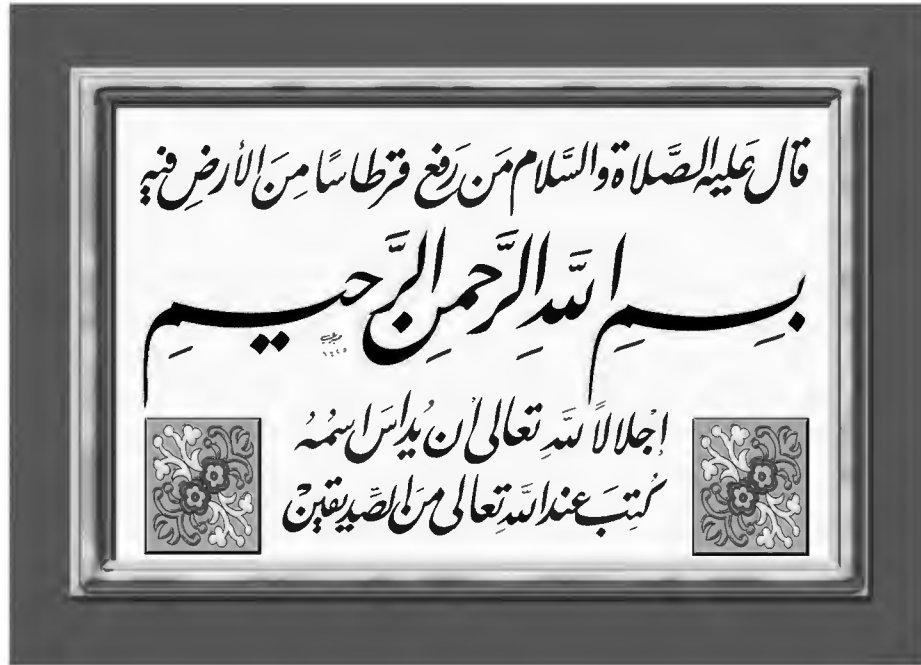 قال عَليه الصَّلاة والسَّلام مَن رَفع قرطاسًا مِنَ الأرضِ فيهِ
بِسمِ اللَّهِ الرَّحمنِ الرَّحيمِ
إجلالاً للَّهِ تعالى أن يُداسَ اسمُهُ
كُتِبَ عِند اللَّهِ تعالى مِنَ الصِّديقينْ